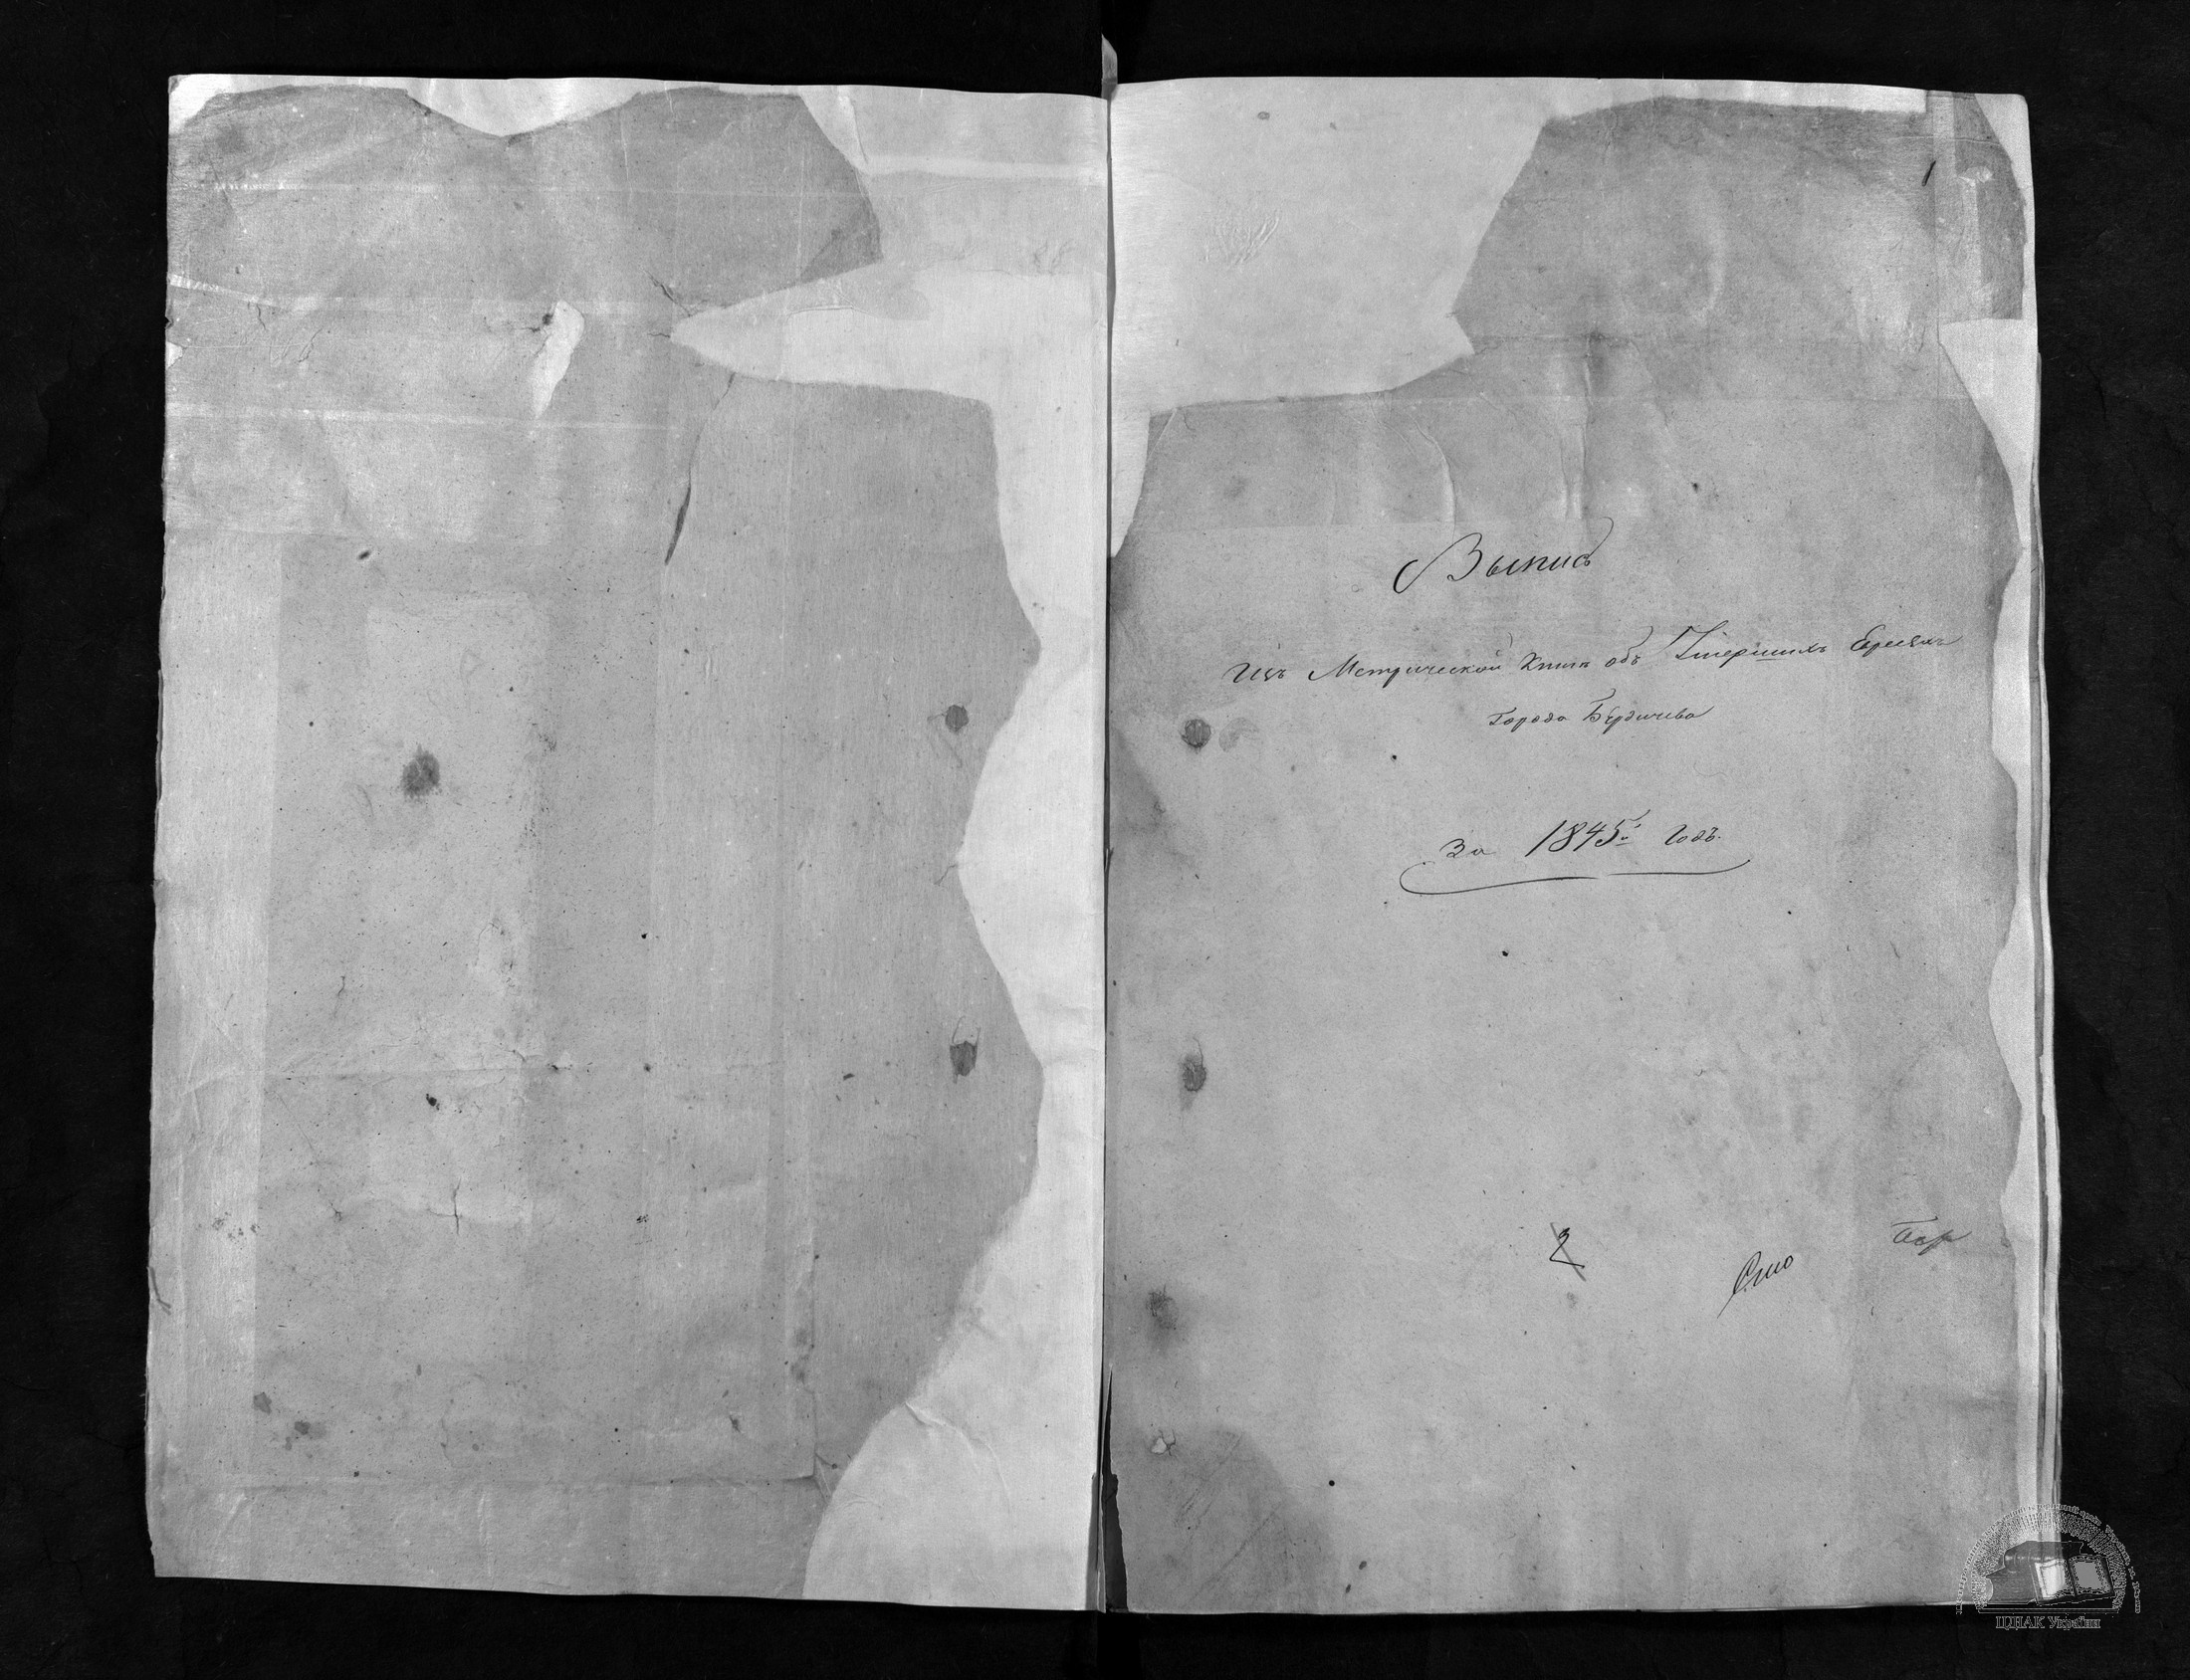 1
Выпись
Изъ Метрической Книги объ Умершихъ Евреяхъ
Города Бердичева
За 1845й Годъ.
2
ЦДІАК України